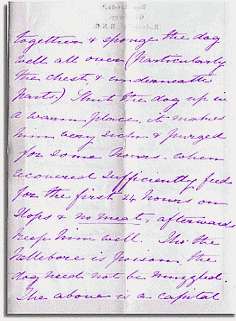 together & sponge the dog
well all over (particularly
the chest & underneath
parts) Shut the dog up in
a warm place, it makes
him very sick & purged
for some hours. When
recovered sufficiently feed
for the first 24 hours on
Slops & no meat, afterwards
keep him well. Tho' the
Hellebore is poison, the
dog need not be muzzled.
The above is a capital